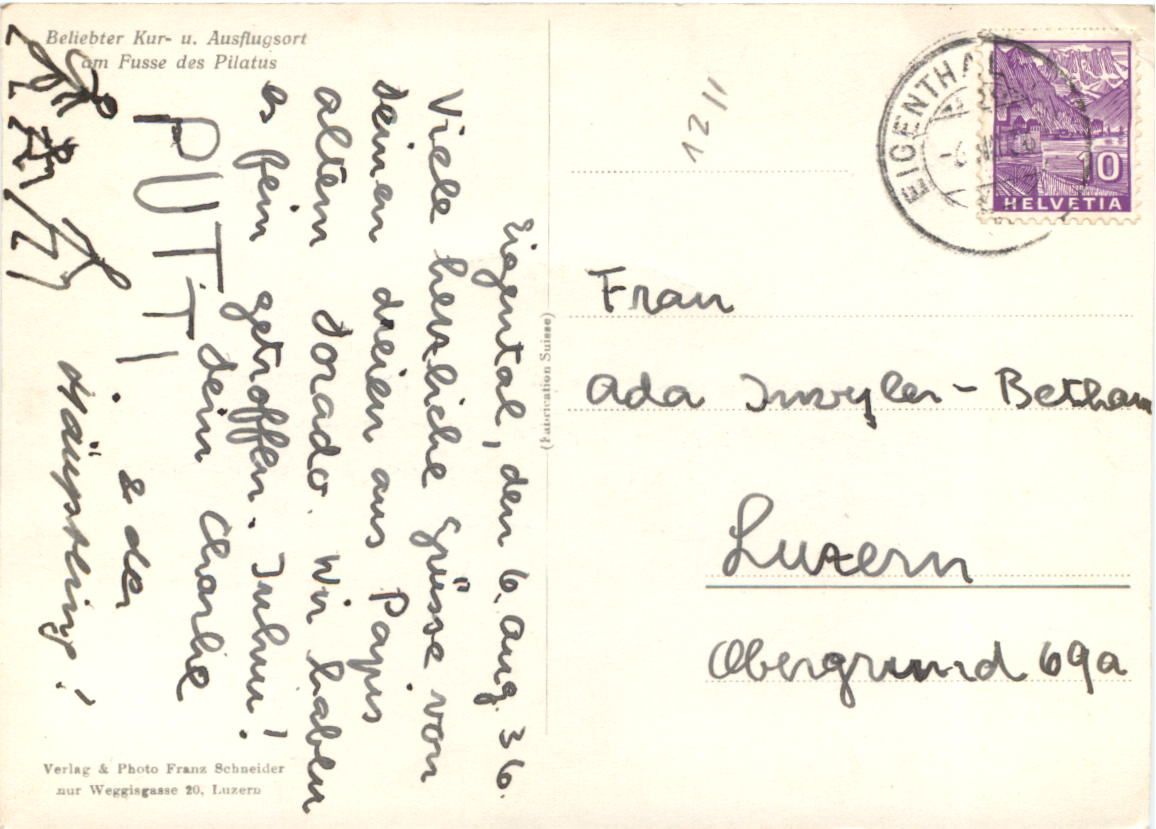 Beliebter Kur- u. Ausflugsort
am Fusse des Pilatus
Eigental, den 6. Aug. 36.
Viele herzliche Grüsse von
Deinen dreien aus Papis
altem Dorado. Wir haben
es fein getroffen. Juhui!
Dein Charlie
PUTTI.
& der
Häuptling!
Verlag & Photo Franz Schneider
nur Weggisgasse 20, Luzern
(Fabrication Suisse)
12 11
EIGENTHAL
10
HELVETIA
Frau
Ada Inwyler-Betham
Luzern
Obergrund 69a